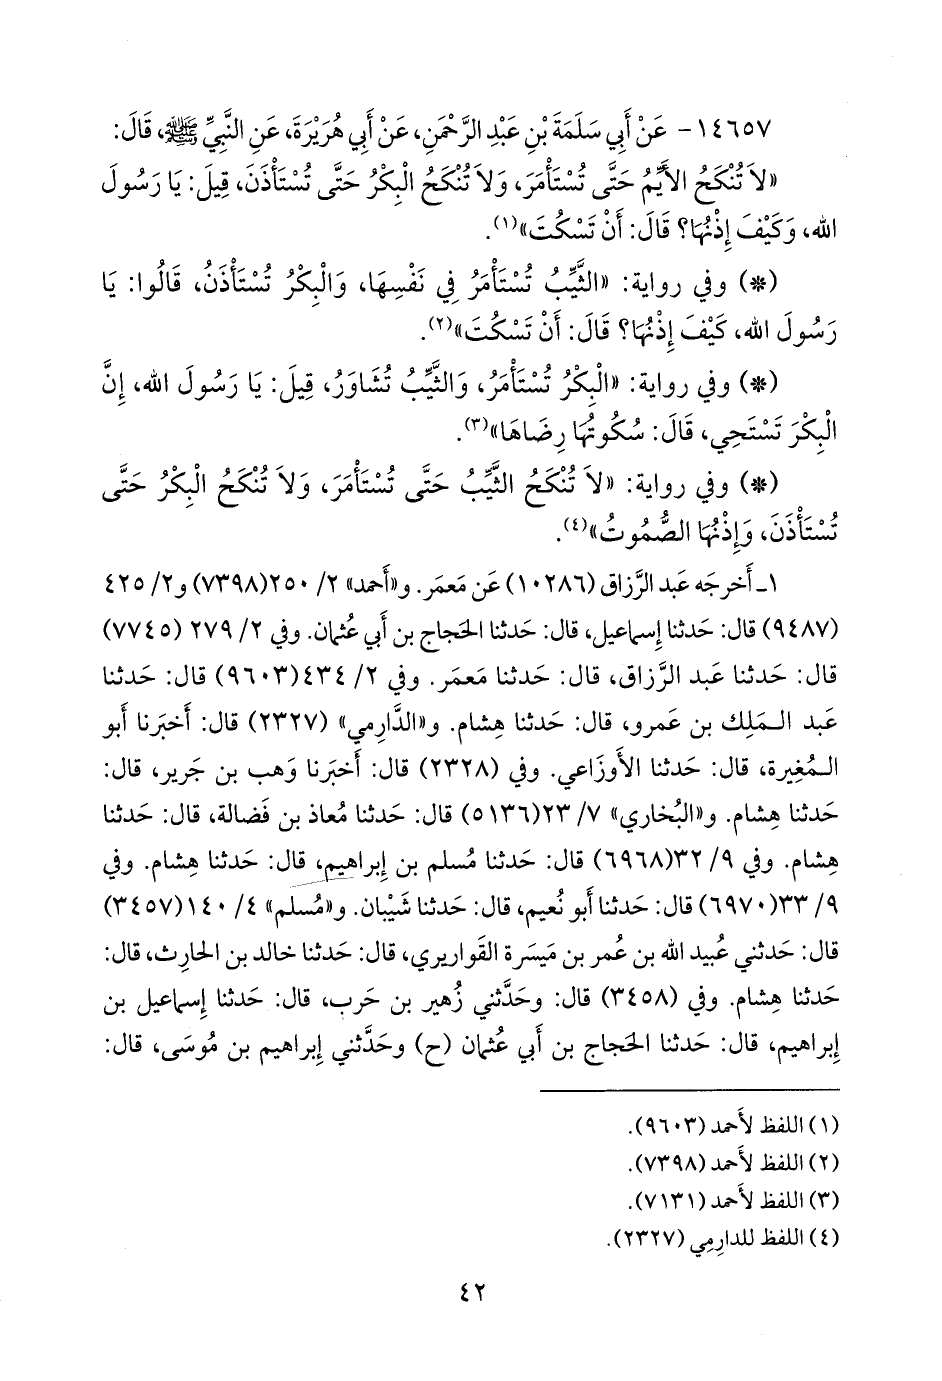 ١٤٦٥٧- عَنْ أَبِي سَلَمَةَ بْنِ عَبْدِ الرَّحْمَنِ، عَنْ أَبِي هُرَيْرَةَ، عَنِ النَّبِيِّ ﷺ، قَالَ:
«لاَ تُنْكَحُ الأَيِّمُ حَتَّى تُسْتَأْمَرَ، وَلاَ تُنْكَحُ الْبِكْرُ حَتَّى تُسْتَأْذَنَ، قِيلَ: يَا رَسُولَ
الله، وَكَيْفَ إِذْنُهَا؟ قَالَ: أَنْ تَسْكُتَ»(١).
(*) وفي رواية: «الثَّيِّبُ تُسْتَأْمَرُ فِي نَفْسِهَا، وَالْبِكْرُ تُسْتَأْذَنُ، قَالُوا: يَا
رَسُولَ الله، كَيْفَ إِذْنُهَا؟ قَالَ: أَنْ تَسْكُتَ»(٢).
(*) وفي رواية: «الْبِكْرُ تُسْتَأْمَرُ، وَالثَّيِّبُ تُشَاوَرُ، قِيلَ: يَا رَسُولَ الله، إِنَّ
الْبِكْرَ تَسْتَحِي، قَالَ: سُكُوتُهَا رِضَاهَا»(٣).
(*) وفي رواية: «لاَ تُنْكَحُ الثَّيِّبُ حَتَّى تُسْتَأْمَرَ، وَلاَ تُنْكَحُ الْبِكْرُ حَتَّى
تُسْتَأْذَنَ، وَإِذْنُهَا الصُّمُوتُ»(٤).
١ـ أَخرجَه عَبد الرَّزاق (١٠٢٨٦) عَن مَعمَر. و«أَحمد» ٢/ ٢٥٠(٧٣٩٨) و٢/ ٤٢٥
(٩٤٨٧) قال: حَدثنا إِسماعيل، قال: حَدثنا الحَجاج بن أَبي عُثمان. وفي ٢/ ٢٧٩ (٧٧٤٥)
قال: حَدثنا عَبد الرَّزاق، قال: حَدثنا مَعمَر. وفي ٢/ ٤٣٤(٩٦٠٣) قال: حَدثنا
عَبد المَلِك بن عَمرو، قال: حَدثنا هِشام. و«الدَّارِمي» (٢٣٢٧) قال: أَخبَرنا أَبو
المُغيرة، قال: حَدثنا الأَوزاعي. وفي (٢٣٢٨) قال: أَخبَرنا وَهب بن جَرير، قال:
حَدثنا هِشام. و«البُخاري» ٧/ ٢٣(٥١٣٦) قال: حَدثنا مُعاذ بن فَضالة، قال: حَدثنا
هِشام. وفي ٩/ ٣٢(٦٩٦٨) قال: حَدثنا مُسلم بن إِبراهيم، قال: حَدثنا هِشام. وفي
٩/ ٣٣(٦٩٧٠) قال: حَدثنا أَبو نُعيم، قال: حَدثنا شَيْبان. و«مُسلم» ٤/ ١٤٠(٣٤٥٧)
قال: حَدثني عُبيد الله بن عُمر بن مَيسَرة القَواريري، قال: حَدثنا خالد بن الحارِث، قال:
حَدثنا هِشام. وفي (٣٤٥٨) قال: وحَدَّثني زُهير بن حَرب، قال: حَدثنا إِسماعيل بن
إِبراهيم، قال: حَدثنا الحَجاج بن أَبي عُثمان (ح) وحَدَّثني إِبراهيم بن مُوسَى، قال:
(١) اللفظ لأَحمد (٩٦٠٣).
(٢) اللفظ لأَحمد (٧٣٩٨).
(٣) اللفظ لأَحمد (٧١٣١).
(٤) اللفظ للدارِمِي (٢٣٢٧).
٤٢